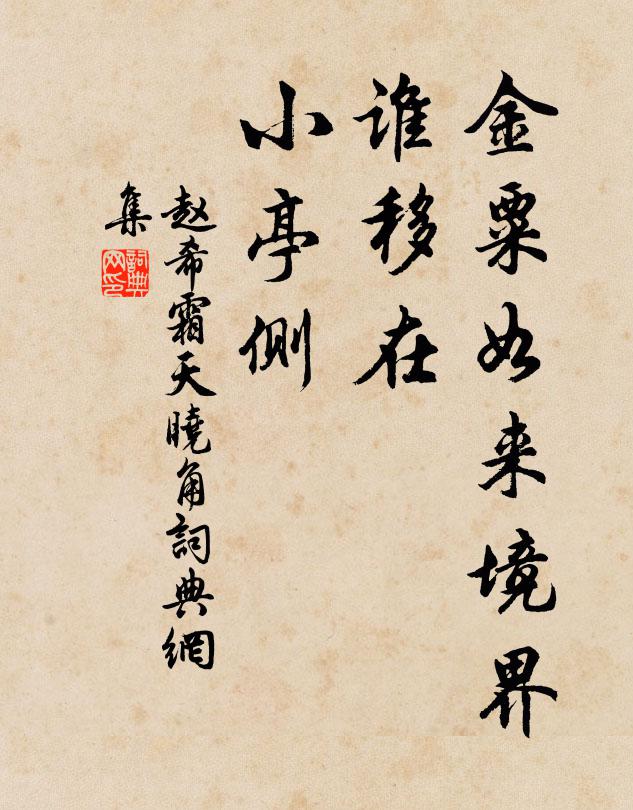 金粟如来境界
谁移在
小亭侧
赵希霜天曉角詞典網
集
詞典
网印